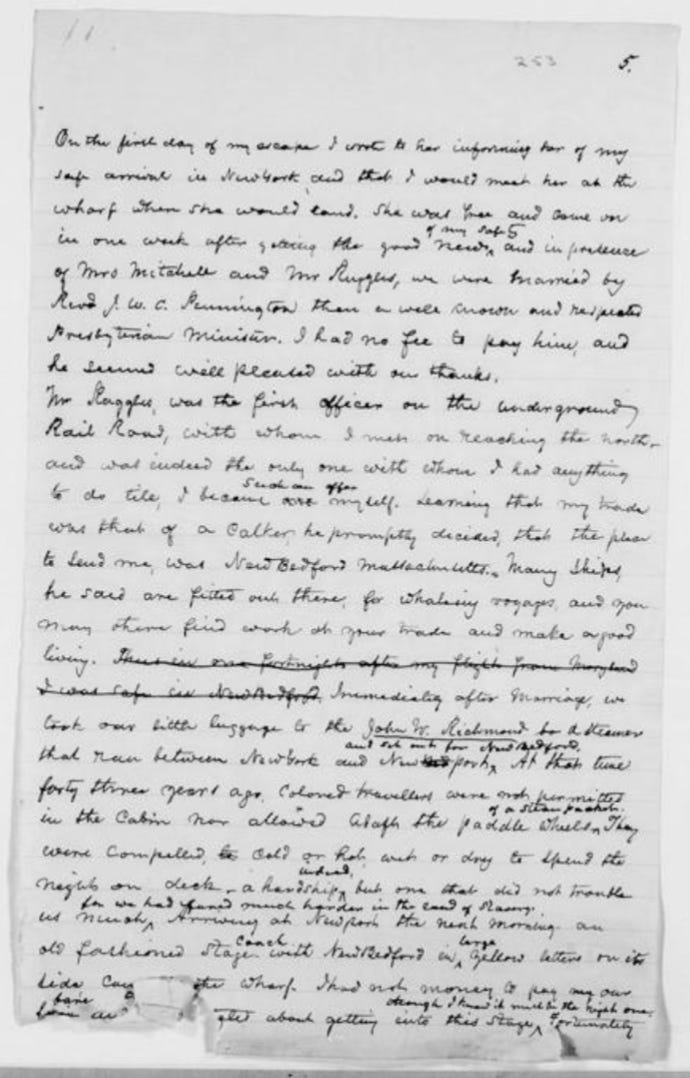 253 5.
On the first day of my escape I wrote to her informing her of my
safe arrival in New York and that I would meet her at the
wharf when she would land. She was free and came on
of my safety
in one week after getting the good news, and in presence
of Mrs Mitchell and Mr Ruggles, we were married by
Revd J. W. C. Pennington then a well known and respected
Presbyterian Minister. I had no fee to pay him, and
he seemed well pleased with our thanks.
Mr Ruggles, was the first officer on the underground
Rail Road, with whom I met on reaching the north-
and was indeed the only one with whom I had anything
Such an officer
to do till, I became myself. Learning that my trade
was that of a Calker, he promptly decided, that the place
to send me, was New Bedford Massachusetts. Many Ships,
he said are fitted out there, for whaleing voyages, and you
may there find work at your trade and make a good
living. Thus in one fortnight after my flight from Maryland
I was safe in New Bedford. Immediately after Marriage, we
took our little luggage to the John W. Richmond steamer
and set out for New Bedford.
that ran between New York and Newport, At that time
forty three years ago, Colored travellers were not permitted
of a steam packet.
in the Cabin nor allowed abaft the paddle wheels, They
were compelled, cold or hot, wet or dry to spend the
indeed,
night on deck - a hardship, but one that did not trouble
for we had fared much harder in the land of slavery.
us much, Arriving at Newport the next morning an
Coach large
old fashioned Stage with New Bedford in yellow letters on its
side the wharf. I had not money to pay my our
fare though I knew it must be the right one.
about getting into this Stage, Fortunately